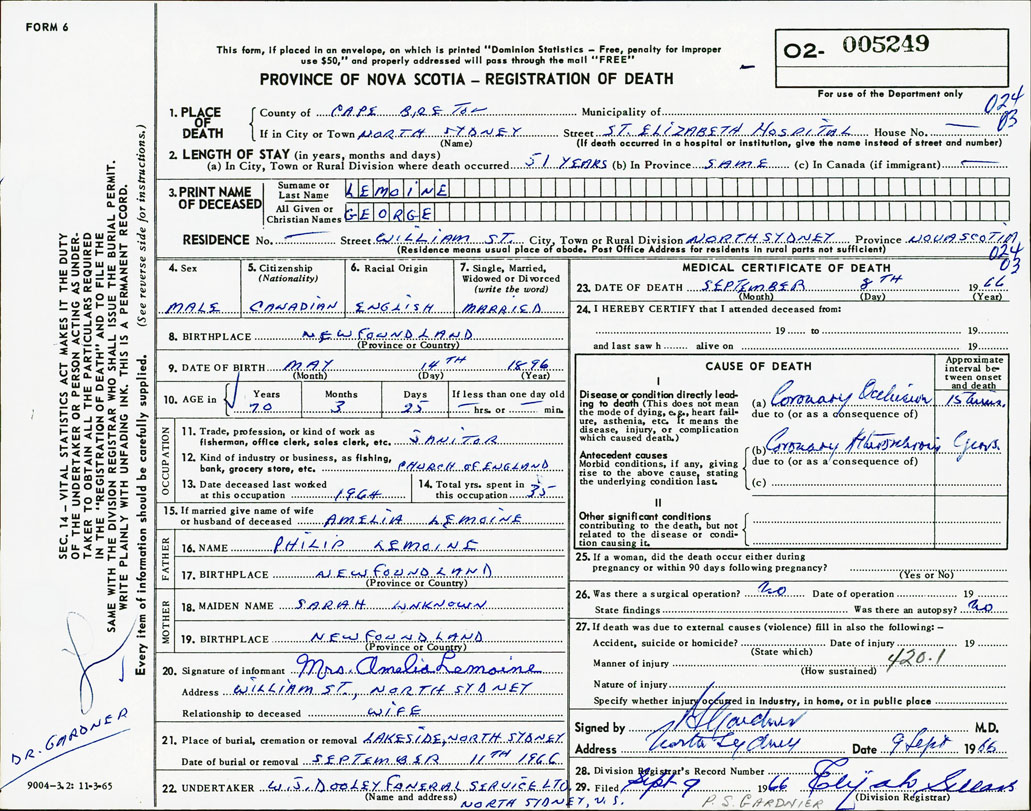 FORM 6
This form, if placed in an envelope, on which is printed "Dominion Statistics – Free, penalty for improper
use $50," and properly addressed will pass through the mail "FREE"
PROVINCE OF NOVA SCOTIA – REGISTRATION OF DEATH
O2- 005249
For use of the Department only
024
03
1. PLACE OF DEATH
County of CAPE BRETON Municipality of
If in City or Town NORTH SYDNEY Street ST. ELIZABETH HOSPITAL House No. —
(Name) (If death occurred in a hospital or institution, give the name instead of street and number)
2. LENGTH OF STAY (in years, months and days)
(a) In City, Town or Rural Division where death occurred 51 YEARS (b) In Province SAME (c) In Canada (if immigrant) —
3. PRINT NAME OF DECEASED
Surname or Last Name LEMOINE
All Given or Christian Names GEORGE
RESIDENCE No. — Street WILLIAM ST. City, Town or Rural Division NORTH SYDNEY Province NOVA SCOTIA
(Residence means usual place of abode. Post Office Address for residents in rural parts not sufficient)
024
03
4. Sex
MALE
5. Citizenship (Nationality)
CANADIAN
6. Racial Origin
ENGLISH
7. Single, Married, Widowed or Divorced (write the word)
MARRIED
8. BIRTHPLACE NEWFOUNDLAND
(Province or Country)
9. DATE OF BIRTH MAY 14TH 1896
(Month) (Day) (Year)
10. AGE in
Years Months Days If less than one day old
70 3 25 — hrs. or — min.
OCCUPATION
11. Trade, profession, or kind of work as
fisherman, office clerk, sales clerk, etc. JANITOR
12. Kind of industry or business, as fishing,
bank, grocery store, etc. CHURCH OF ENGLAND
13. Date deceased last worked
at this occupation 1964
14. Total yrs. spent in
this occupation 35
15. If married give name of wife
or husband of deceased AMELIA LEMOINE
FATHER
16. NAME PHILIP LEMOINE
17. BIRTHPLACE NEWFOUNDLAND
(Province or Country)
MOTHER
18. MAIDEN NAME SARAH UNKNOWN
19. BIRTHPLACE NEWFOUNDLAND
(Province or Country)
20. Signature of informant Mrs. Amelia Lemoine
Address WILLIAM ST., NORTH SYDNEY
Relationship to deceased WIFE
21. Place of burial, cremation or removal LAKESIDE, NORTH SYDNEY
Date of burial or removal SEPTEMBER 11TH 1966
22. UNDERTAKER W.J. DOOLEY FUNERAL SERVICE LTD
(Name and address) NORTH SYDNEY, N.S.
MEDICAL CERTIFICATE OF DEATH
23. DATE OF DEATH SEPTEMBER 8TH 1966
(Month) (Day) (Year)
24. I HEREBY CERTIFY that I attended deceased from:
19 to 19
and last saw h alive on 19
CAUSE OF DEATH
Approximate interval between onset and death
I
Disease or condition directly leading to death (This does not mean
the mode of dying, e.g., heart failure, asthenia, etc. It means the
disease, injury, or complication
which caused death.)
(a) Coronary Occlusion 15
due to (or as a consequence of)
Antecedent causes
Morbid conditions, if any, giving
rise to the above cause, stating
the underlying condition last.
(b) Coronary
due to (or as a consequence of)
(c)
II
Other significant conditions
contributing to the death, but not
related to the disease or condition causing it.
25. If a woman, did the death occur either during
pregnancy or within 90 days following pregnancy?
(Yes or No)
26. Was there a surgical operation? No Date of operation 19
State findings Was there an autopsy? No
27. If death was due to external causes (violence) fill in also the following: –
Accident, suicide or homicide? Date of injury 19
(State which)
Manner of injury 420.1
(How sustained)
Nature of injury
Specify whether injury occurred in industry, in home, or in public place
Signed by Gardner M.D.
Address North Sydney Date 9 Sept 1966
28. Division Registrar's Record Number
29. Filed Sept 9 1966 Elijah
(Division Registrar)
P. S. GARDNIER
SEC. 14 – VITAL STATISTICS ACT MAKES IT THE DUTY
OF THE UNDERTAKER OR PERSON ACTING AS UNDER-
TAKER TO OBTAIN ALL THE PARTICULARS REQUIRED
IN THE "REGISTRATION OF DEATH" AND TO FILE THE
SAME WITH THE DIVISION REGISTRAR WHO SHALL ISSUE THE BURIAL PERMIT.
WRITE PLAINLY WITH UNFADING INK. THIS IS A PERMANENT RECORD.
Every item of information should be carefully supplied. (See reverse side for instructions.)
DR. GARDNER
9004-3.2: 11-3-65